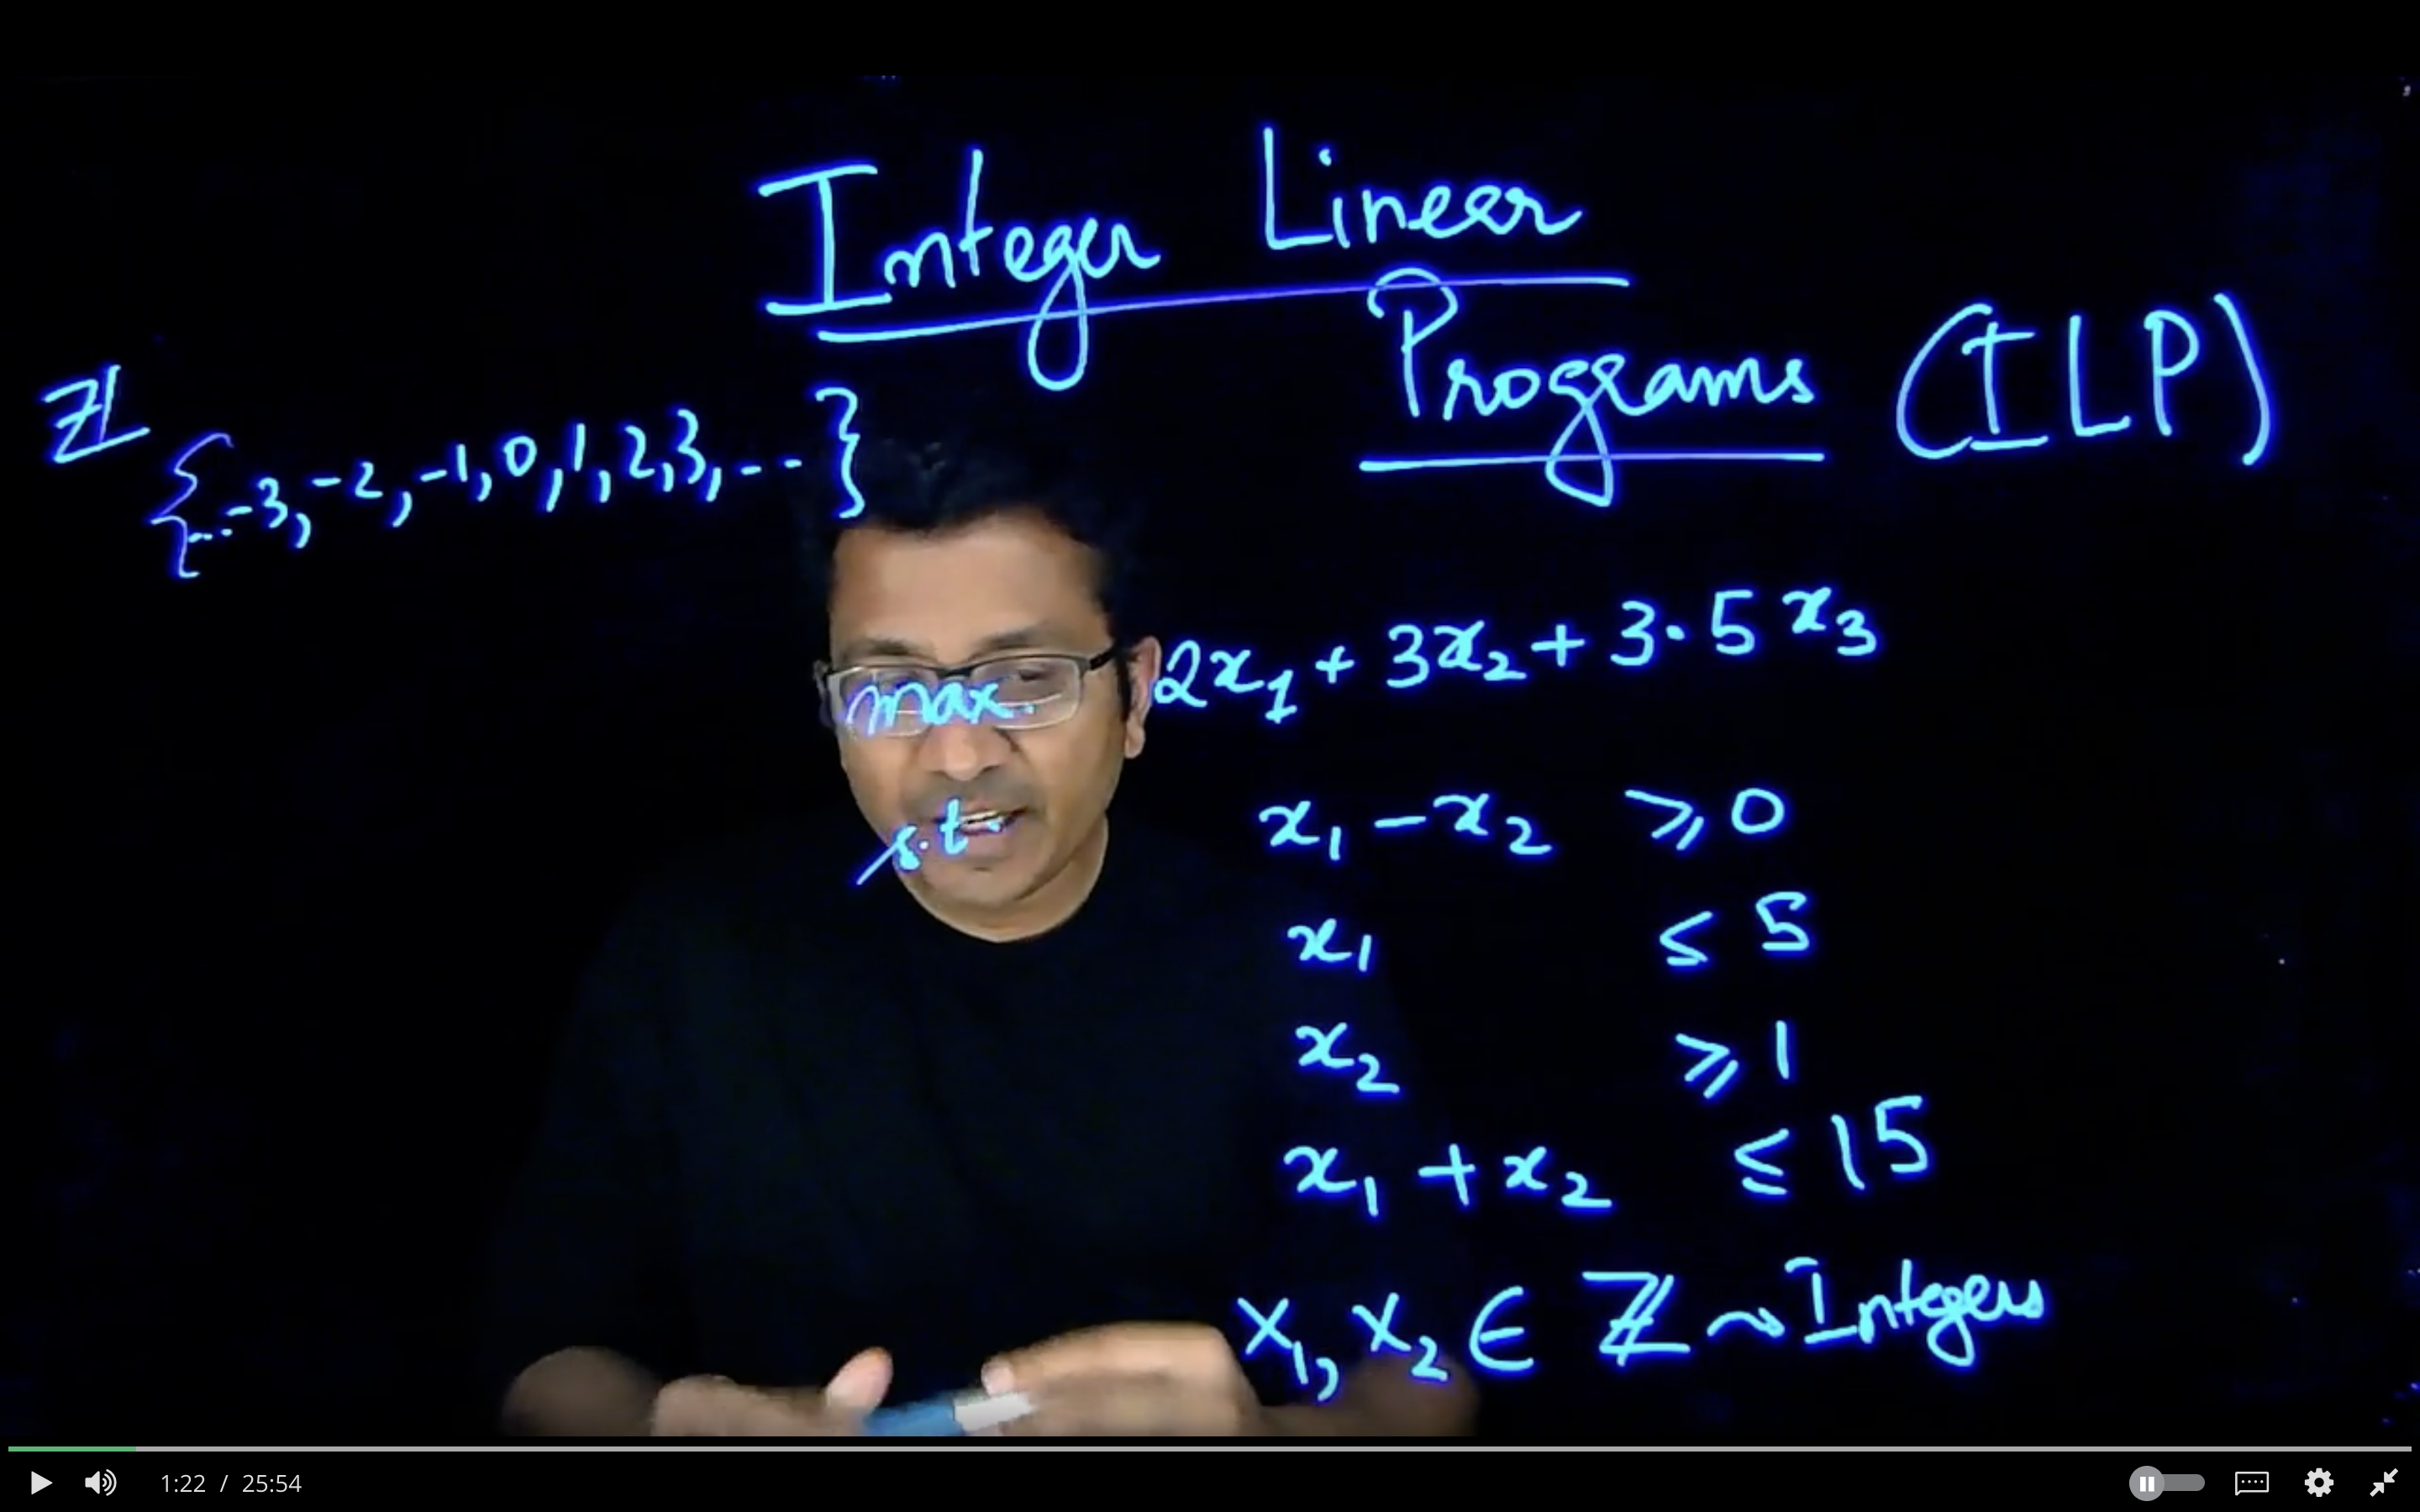 Integer Linear
Programs (ILP)
ℤ
{...-3, -2, -1, 0, 1, 2, 3, ...}
max. 2x₁ + 3x₂ + 3.5x₃
s.t. x₁ - x₂ ≥ 0
x₁ ≤ 5
x₂ ≥ 1
x₁ + x₂ ≤ 15
x₁, x₂ ∈ ℤ ~ Integers
1:22 / 25:54